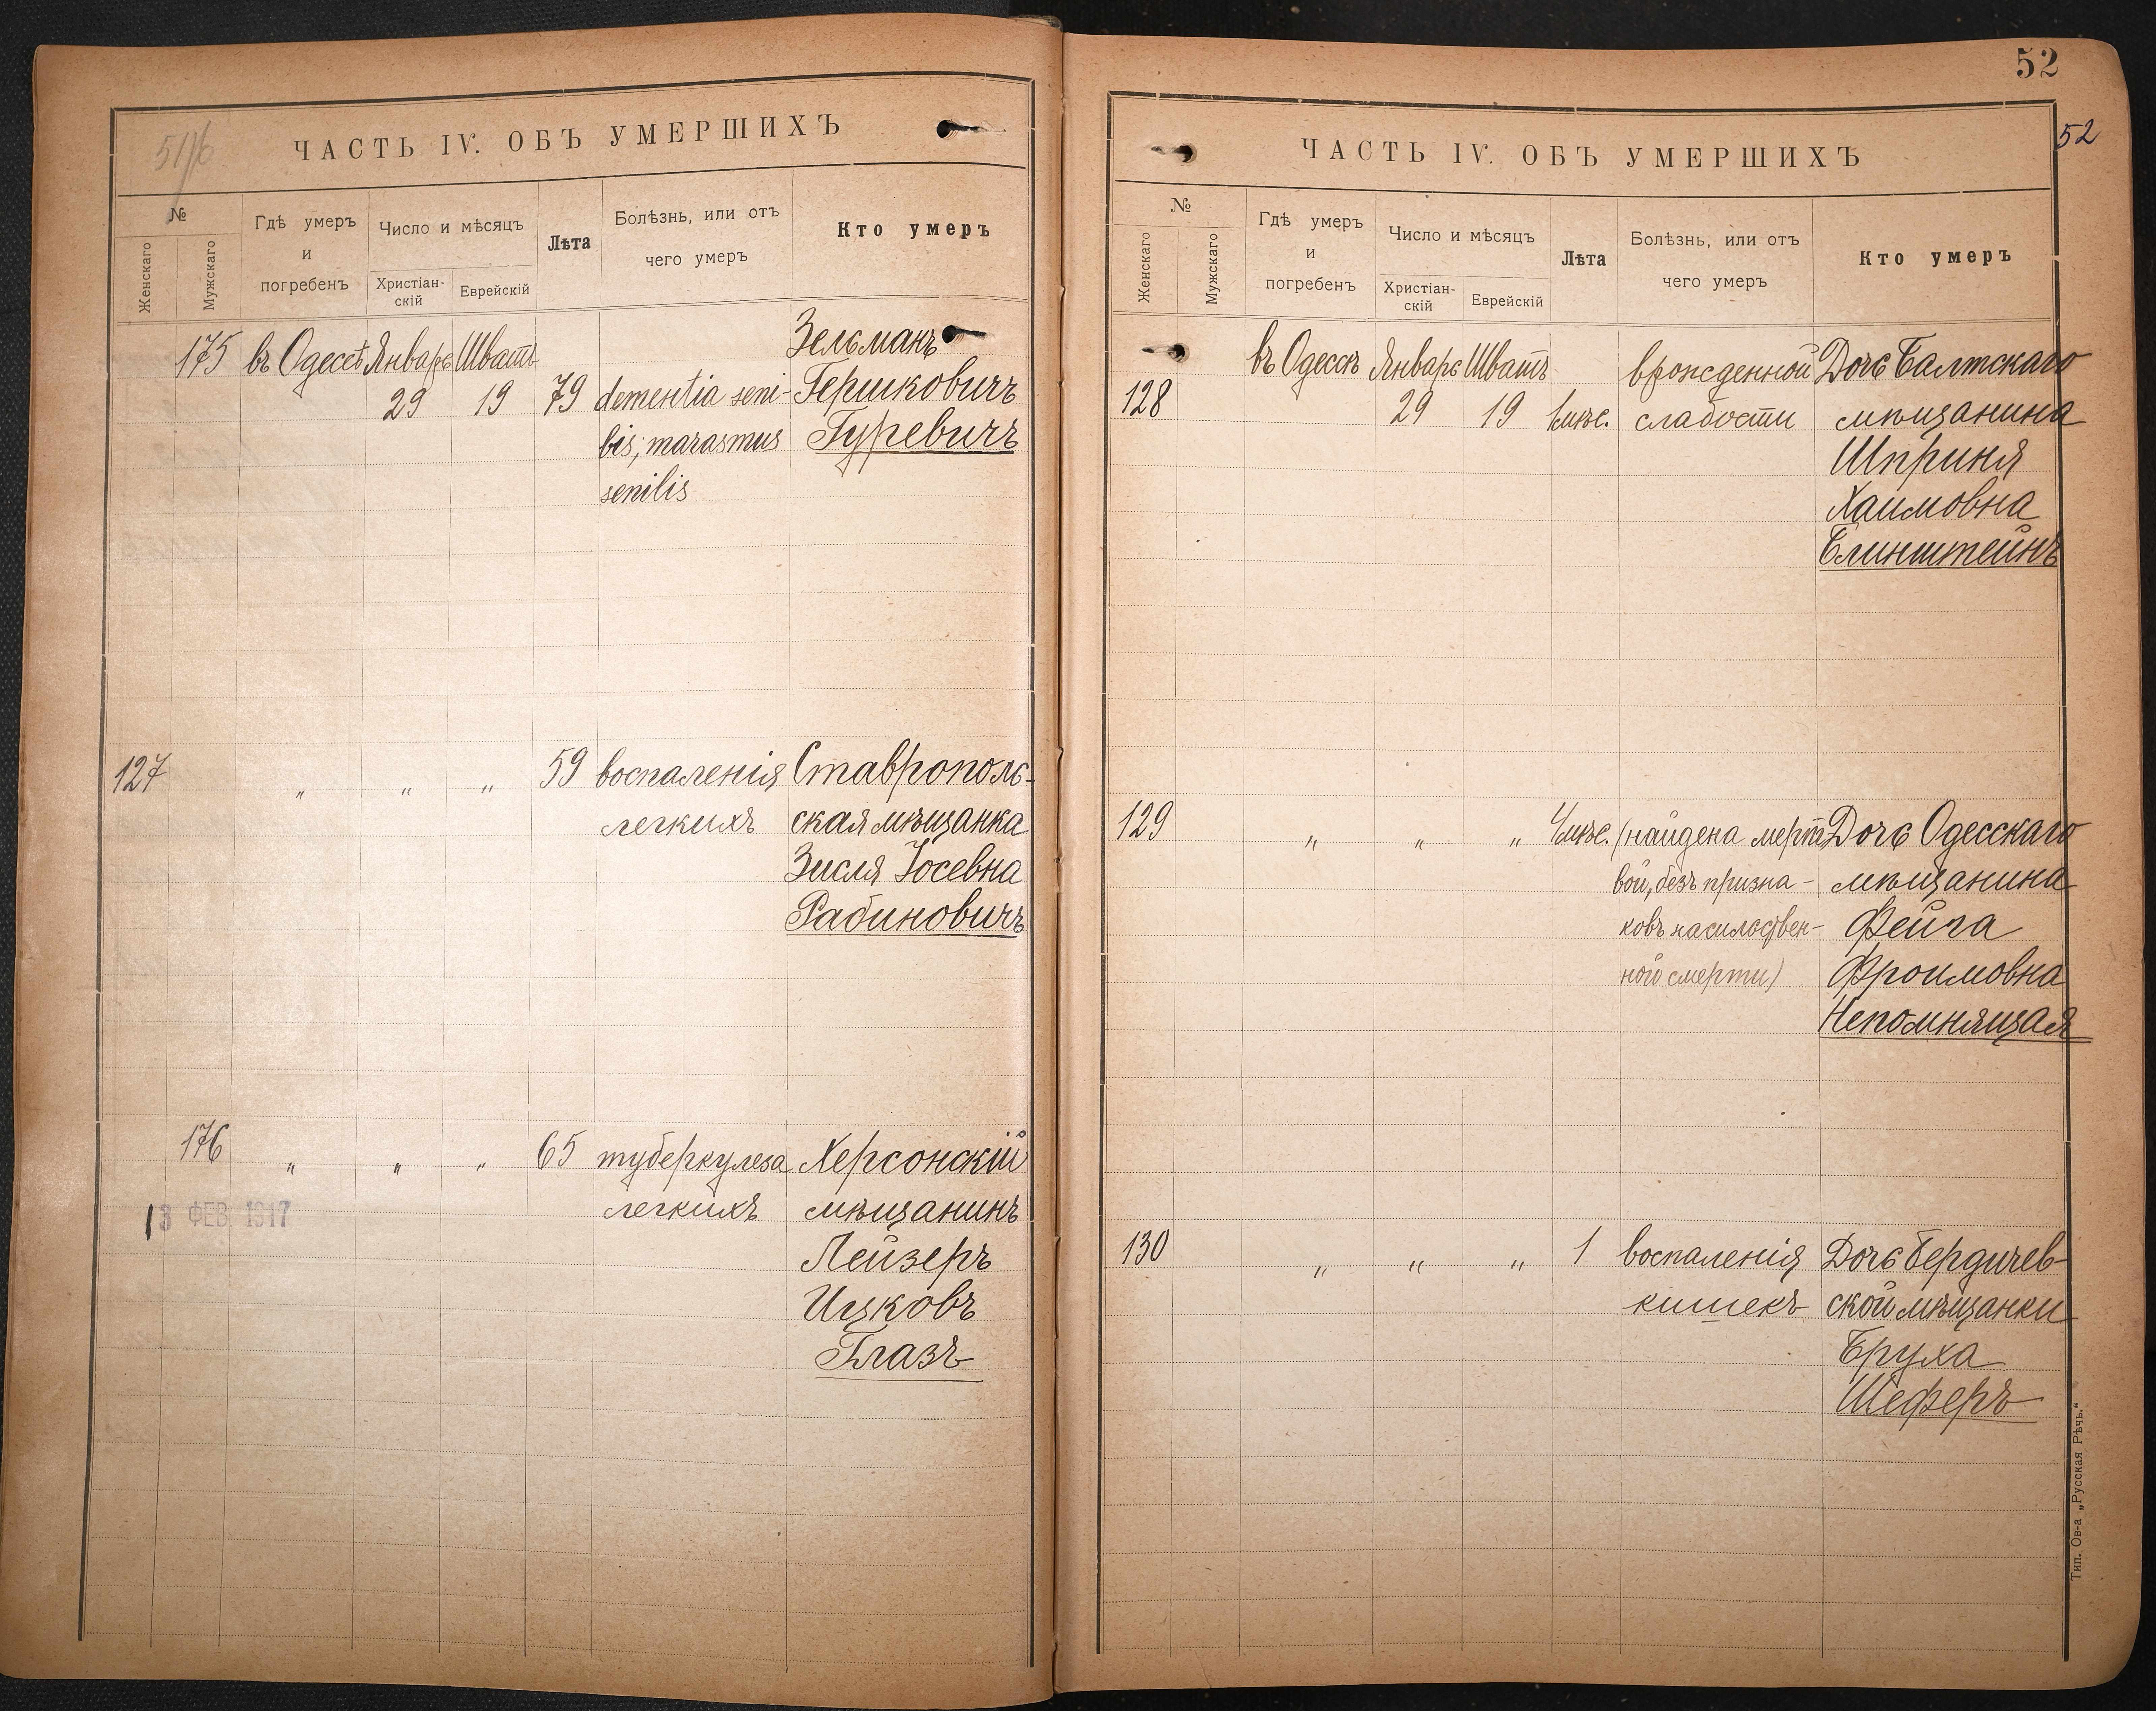 51/6
ЧАСТЬ IV. ОБЪ УМЕРШИХЪ
№
Женскаго
Мужскаго
Гдѣ умеръ
и
погребенъ
Число и мѣсяцъ
Христіан-
скій
Еврейскій
Лѣта
Болѣзнь, или отъ
чего умеръ
Кто умеръ
Зельманъ
175 въ Одессѣ Январь Шватъ
29 19 79 dementia seni- Гершковичъ
lis; marasmus Гуревичъ
senilis
127 " " " 59 воспаленія Ставрополь-
легкихъ ская мѣщанка
Зисля Іосевна
Рабиновичъ
176 " " " 65 туберкулеза Херсонскій
легкихъ мѣщанинъ
13 ФЕВ. 1917
Лейзеръ
Ицковъ
Глазъ
52
52
ЧАСТЬ IV. ОБЪ УМЕРШИХЪ
№
Женскаго
Мужскаго
Гдѣ умеръ
и
погребенъ
Число и мѣсяцъ
Христіан-
скій
Еврейскій
Лѣта
Болѣзнь, или отъ
чего умеръ
Кто умеръ
въ Одессѣ Январь Шватъ врожденной Дочь Балтскаго
128 29 19 1 мѣс. слабости мѣщанина
Шприня
Хаимовна
Блинштейнъ
129 " " " 4 мѣс. (найдена мерт Дочь Одесскаго
вой, безъ призна- мѣщанина
ковъ насильствен- Фейга
ной смерти) Фроимовна
Непомнящая
130 " " " 1 воспаленія Дочь Бердичев-
кишекъ ской мѣщанки
Бруха
Шеферъ
Тип. Ов-а „Русская Рѣчь.“